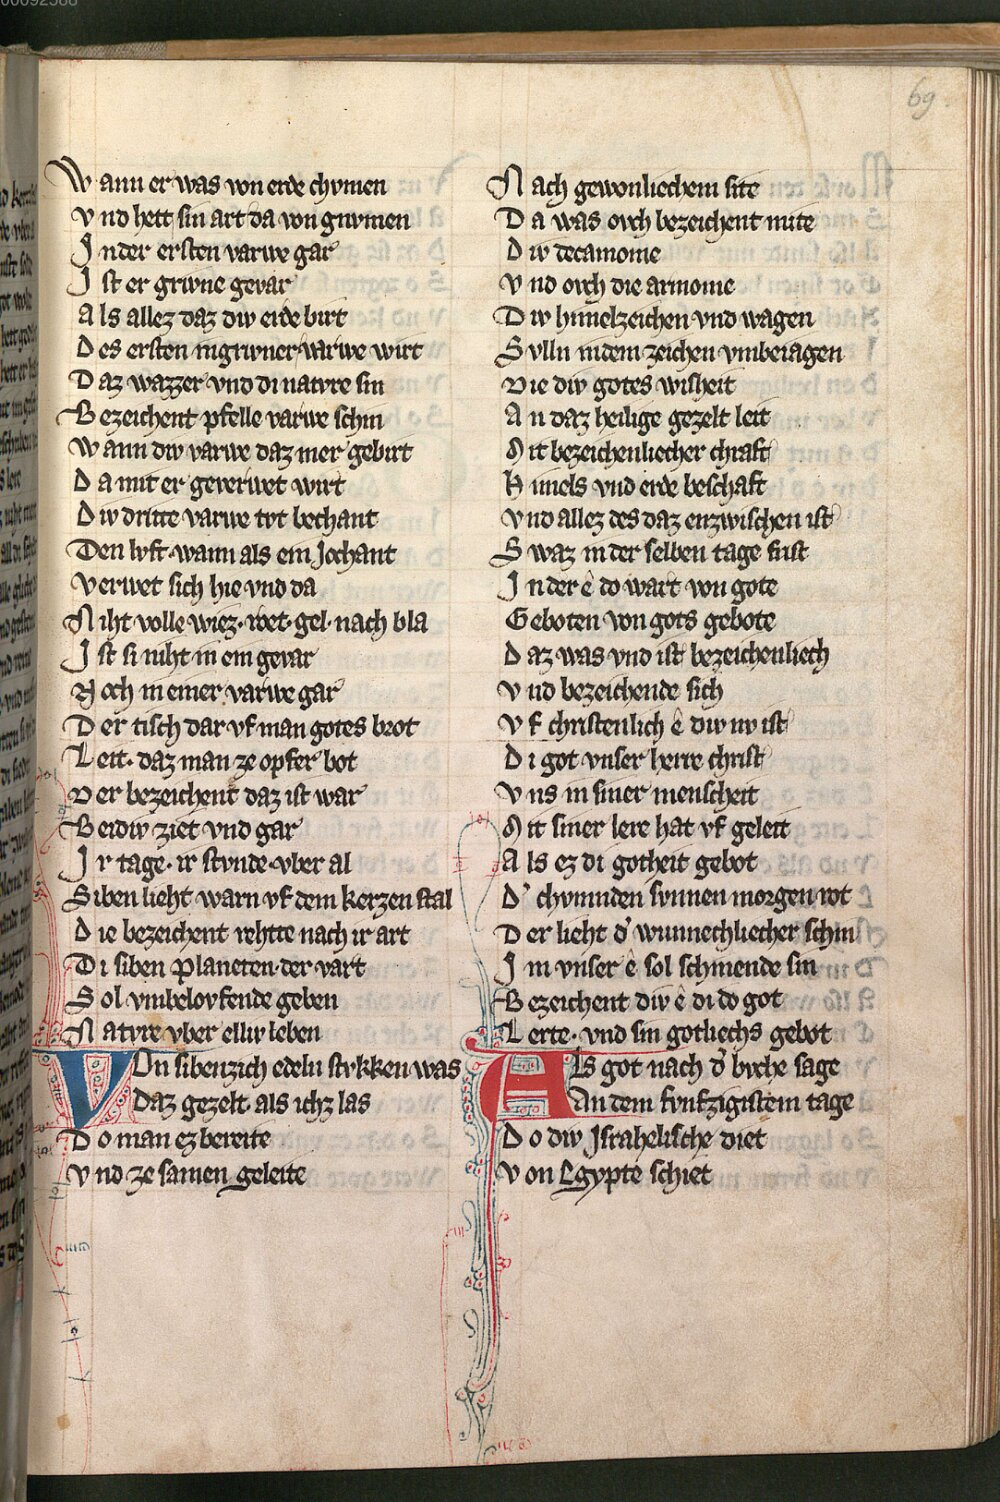 00092588
69
Wann er was von erde chvmen
Vnd hett sin art da von gnvmen
In der ersten varwe gar
Ist er grivne gevar
Als allez daz div erde birt
Des ersten ingrivner varwe wirt
Daz wazzer vnd di natvre sin
Bezeichent pfelle varwe schin
Wann div varwe daz mer gebirt
Da mit er geverwet wirt
Div dritte varwe tvt bechant
Den lvft· wann als ein Jochant
Verwet sich hie vnd da
Niht volle wiez· rot· gel· nach bla
Ist si niht in ein gevar
Noch in einer varwe gar
Der tisch dar vf man gotes brot
Leit· daz man ze opfer bot
Der bezeichent daz ist war
Beidiv ziet vnd gar
Ir tage· ir stvnde· vber al
Siben lieht warn vf dem kerzen stal
Die bezeichent rehtte nach ir art
Di siben planeten· der vart
Sol vmbelovfende geben
Natvre vber elliv leben
Von sibenzich edeln stvkken was
Daz gezelt als ichz las
Do man ez bereite
Vnd ze samen geleite
Nach gewonliechem site
Da was ovch bezeichent mite
Div decamonie
Vnd ovch die armonie
Div himelzeichen vnd wagen
Svlln in dem zeichen vmbeiagen
Die div gotes wisheit
An daz heilige gezelt leit
Mit bezeichenliecher chraft
Himels vnd erde beschaft
Vnd allez des daz enzwischen ist
Swaz in der selben tage frist
In der ê do wart von gote
Geboten von gots gebote
Daz was vnd ist bezeichenliech
Vnd bezeichende sich
Vf christenlich ê div nv ist
Di got vnser herre christ
Vns in siner menscheit
Mit siner lere hat vf geleit
Als ez di gotheit gebot
D' chvmnden svnnen morgen rot
Der lieht d' wunnechliecher schin
In vnser ê sol schinende sin
Bezeichent div ê di do got
Lerte· vnd sin gotliechs gebot
Als got nach d' bvche sage
An dem fvnfzigistem tage
Do div Jsrahelische diet
Von Egypte schiet